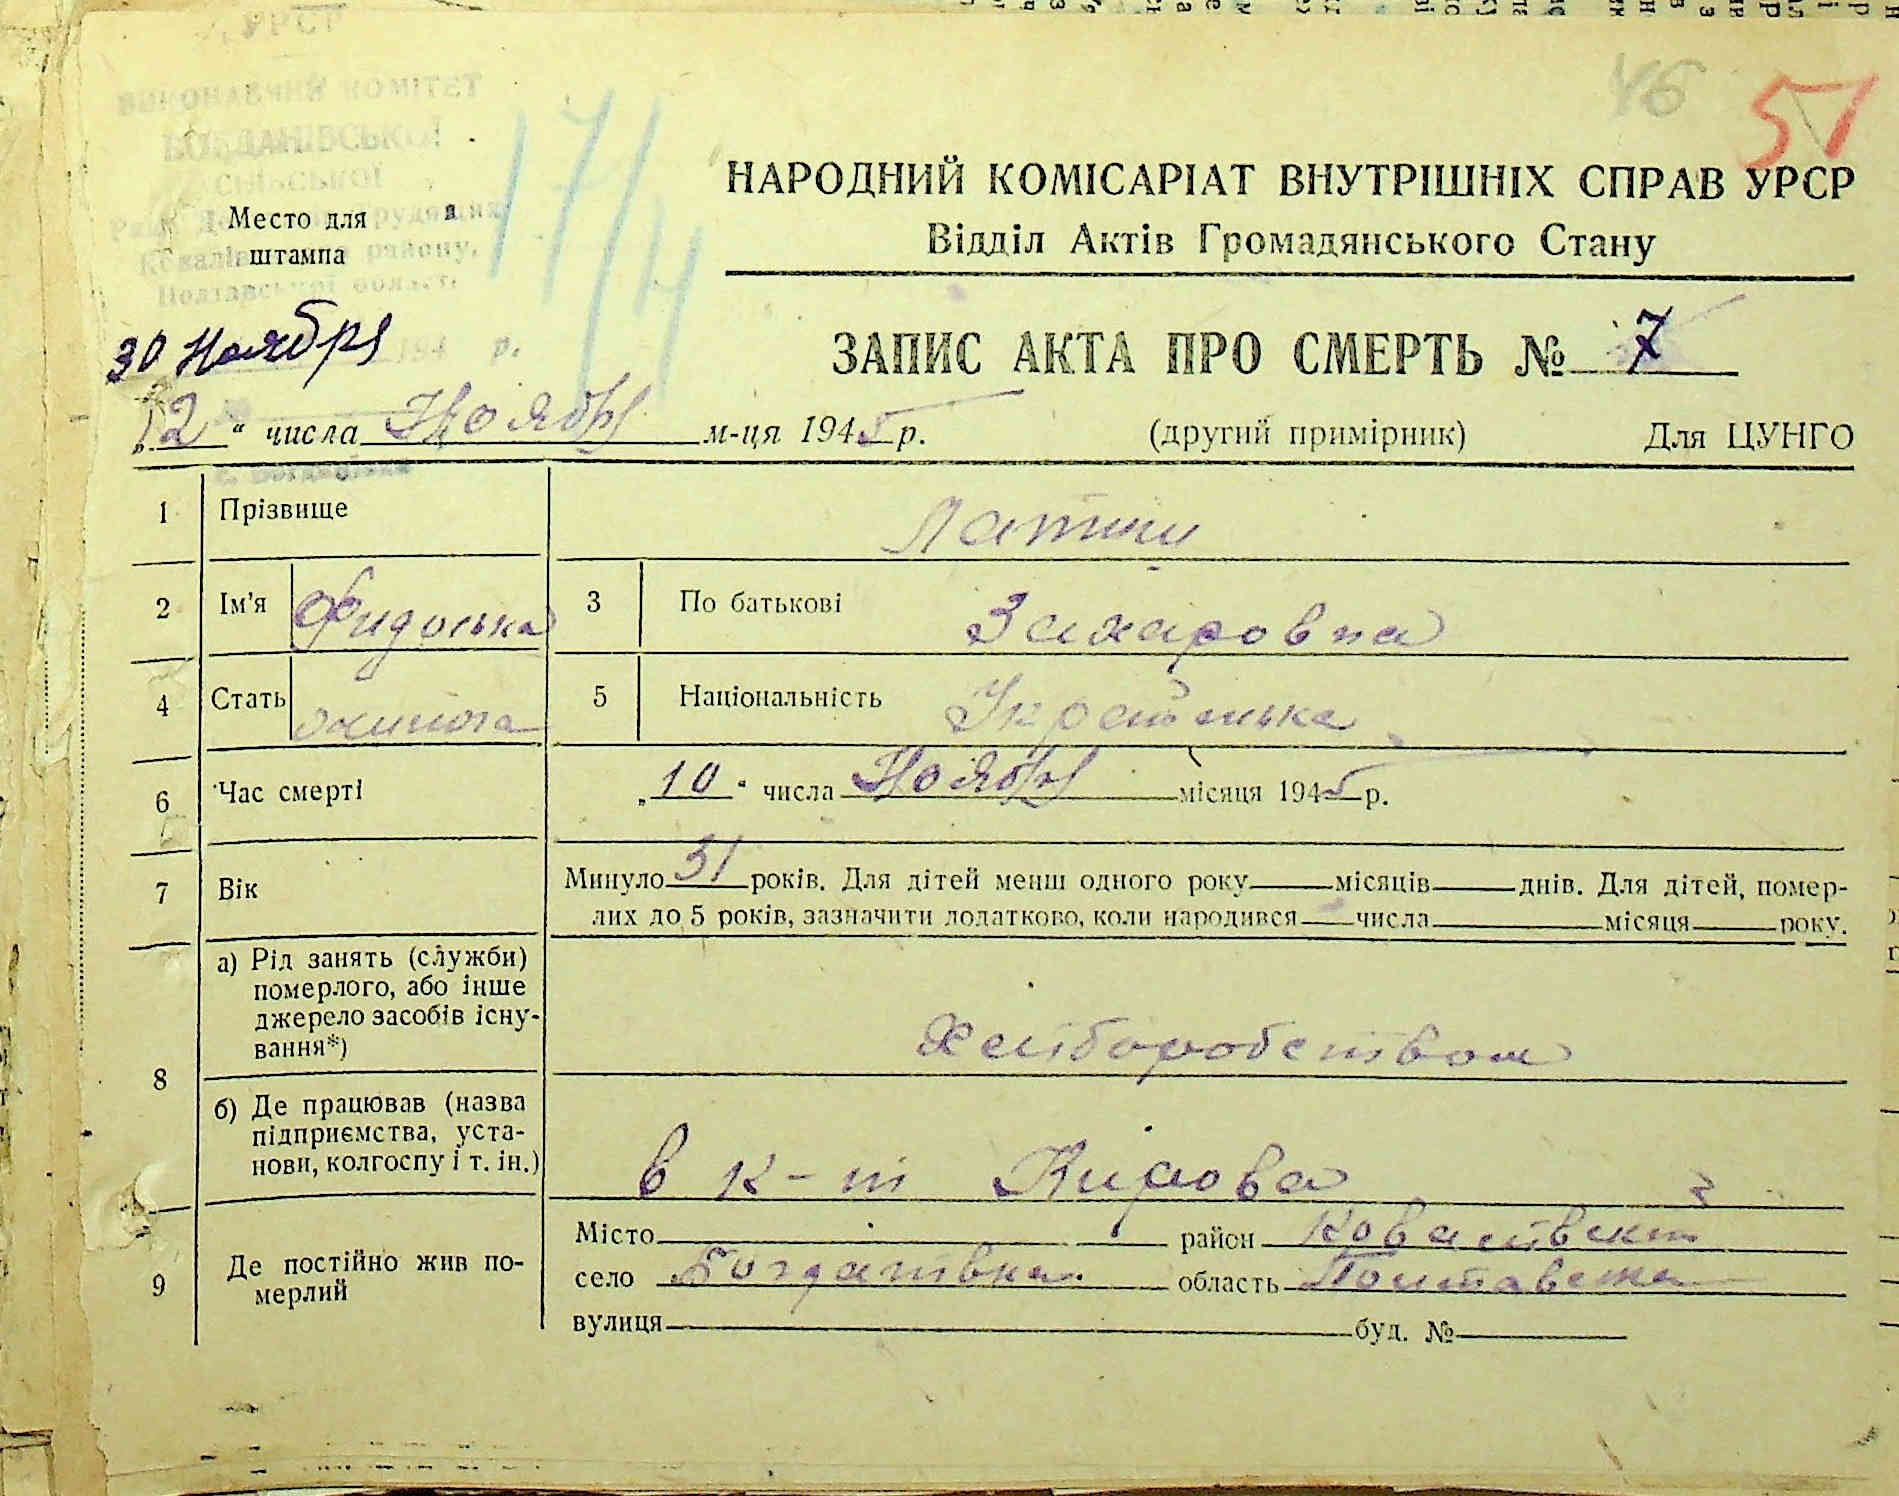 УРСР
ВИКОНАВЧИЙ КОМІТЕТ
БОГДАНІВСЬКОЇ
СІЛЬСЬКОЇ
Место для
штампа
району,
Полтавської області
194 р.
30 Ноября
17/4
46
51
НАРОДНИЙ КОМІСАРІАТ ВНУТРІШНІХ СПРАВ УРСР
Відділ Актів Громадянського Стану
ЗАПИС АКТА ПРО СМЕРТЬ № 7
„12“ числа Ноября м-ця 1945 р. (другий примірник) Для ЦУНГО
1 Прізвище
2 Ім'я 3 По батькові Захаровна
4 Стать 5 Національність Українька
6 Час смерті „10“ числа Ноября місяця 1945 р.
7 Вік Минуло 31 років. Для дітей менш одного року місяців днів. Для дітей, помер-
лих до 5 років, зазначити додатково, коли народився числа місяця року.
8 а) Рід занять (служби)
померлого, або інше
джерело засобів існу-
вання*)
Хлиборобством
б) Де працював (назва
підприємства, уста-
нови, колгоспу і т. ін.)
в к-пі Кирова
9 Де постійно жив по-
мерлий
Місто район
село Богданівка область
вулиця буд. №